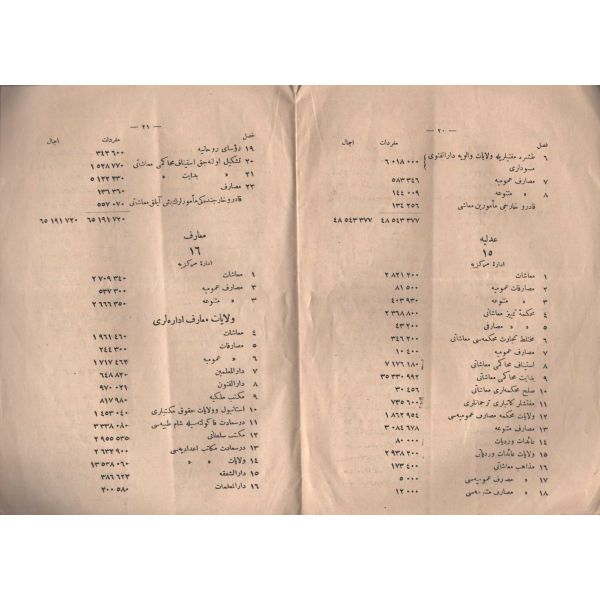 — ٢٠ —
فصل مفردات اجمال
٦ طشره مفتیلریله ولایات والویه دارالفتوی
مسوداری ٦ ٠١٨ ٠٠٠
٧ مصارف عمومیه ٥٨٣ ٣٤٦
٨ » متنوعه ١٤٤ ٠٠٩
قادرو خارجی مأمورین معاشی ١٣٤ ٢٥٦
٤٨ ٥٤٣ ٣٧٧ ٤٨ ٥٤٣ ٣٧٧
عدلیه
١٥
ادارۀ مرکزیه
١ معاشات ٢ ٨٢١ ٢٠٠
٢ مصارفات عمومیه ٨١ ٥٠٠
٣ » متنوعه ٤٠٣ ٩٣٠
٤ محکمۀ تمییز معاشاتی ٢ ٣٦٨ ٨٠٠
٥ » » مصارفی ٤٣ ٢٠٠
٦ مختلط تجارت محکمه‌سی معاشاتی ٣٤٦ ٢٠٠
٧ مصارف عمومیه ١٠ ٤٠٠
٨ استیناف محاکمی معاشاتی ٧ ١٧٦ ١٨٠
٩ بدایت محاکمی معاشاتی ٣٥ ٣٣٠ ٩٩٢
١٠ صلح محکمه‌لری معاشاتی ٣٠ ٤٥٦
١١ مفتشلر کاتبلری ترجمانلری ٧٣٥ ٦٠٠
١٢ ولایات محکمه مصارف عمومیه‌سی ١ ٨٦٢ ٩٥٤
١٣ مصارف متنوعه ٣ ٠٨٤ ٦٧٨
١٤ عائدات وردیات ٨٠ ٠٠٠
١٥ ولایات عائدات وردیاتی ٢ ٩٣٨ ٢٠٠
١٦ مذاهب معاشاتی ١٧٣ ٤٠٠
١٧ » مصرف عمومیه‌سی ٥ ٠٠٠
١٨ » مصارف متنوعه‌سی ١٢ ٠٠٠
— ٢١ —
فصل مفردات اجمال
١٩ رؤسای روحانیه ٣٤٢ ٦٠٠
٢٠ تشکیل اوله‌جق استیناف محاکمی معاشاتی ١ ٥٢٨ ٧٧٠
٢١ » » بدایت » » ٥ ١٢٢ ٢٣٠
٢٢ مصارف ١٣٦ ٣٦٠
قادرو خارجنده‌کی مأمورلرك بش آیلق معاشاتی ٥٥٧ ٠٧٠
٦٥ ١٩١ ٧٢٠ ٦٥ ١٩١ ٧٢٠
معارف
١٦
ادارۀ مرکزیه
١ معاشات ٢ ٧٠٩ ٣٤٠
٢ مصارف عمومیه ٥٣٧ ٣٠٠
٣ » متنوعه ٢ ٦٦٦ ٣٥٠
ولایات معارف اداره‌لری
٤ معاشات ١ ٩٦١ ٤٦٠
٥ مصارفات ٢٤٤ ٣٠٠
٦ » عمومیه ١ ٧١٧ ٤٦٤
٧ دارالمعلمین ٦٤٨ ٨٢٠
٨ دارالفنون ٩٧٠ ٠٢١
٩ مکتب ملکیه ٨١٧ ٩٨٠
١٠ استانبول وولایات حقوق مکتبلری ١ ٤٥٣ ٠٤٠
١١ درسعادت فاکولته‌سیله شام طبیه‌سی ٣ ٣٣٨ ٠٨٠
١٢ مکتب سلطانی ٢ ٩٥٥ ٥٣٠
١٣ درسعادت مکاتب اعدادیه‌سی ٢ ٦٣٤ ٩٠٠
١٤ ولایات » » ١٣ ٥٣٨ ٠٦٠
١٥ دارالشفقه ٣٨٦ ٦٢٣
١٦ دارالمعلمات ٢٠٠ ٥٨٠